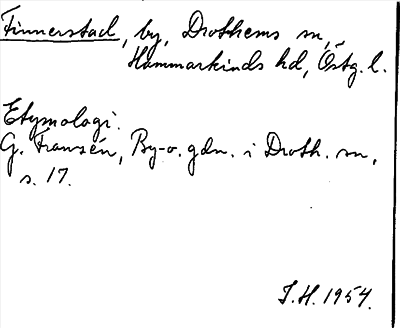 Finnerstad, by, Drothems sn,
Hammarkinds hd, Östg. l.
Etymologi.
G. Franzén, By-o. gdn. i Droth. sn,
s. 17.
I.H. 1954.